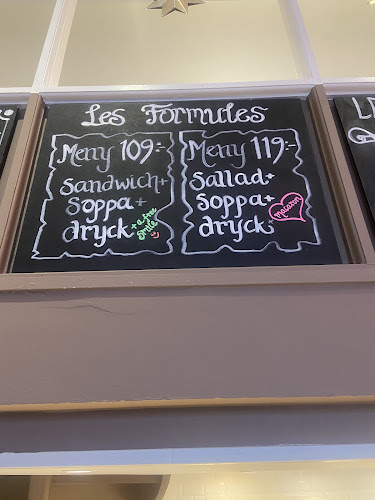 Les Formules
Meny 109:-
Sandwich+
Soppa+
dryck
+ a free
smile
Meny 119:-
Sallad+
Soppa+
dryck+
Macaron